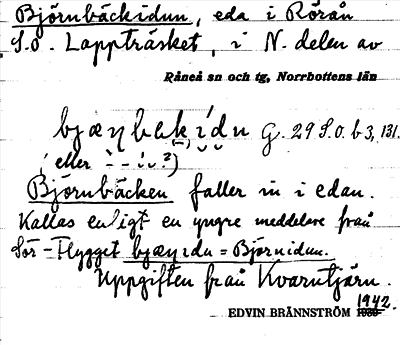 Björnbäckidun, eda i Rörån
S.O. Lappträsket, i N. delen av
Råneå sn och tg, Norrbottens län
bjæṇbɛkídn G. 29 S.O. b3, 131.
(eller ?)
Björnbäcken faller in i edan.
Kallas enligt en yngre meddelare från
Sör-Flygget bjæṇıdn = Björnidun.
Uppgiften från Kvarntjärn.
1942.
EDVIN BRÄNNSTRÖM 1930